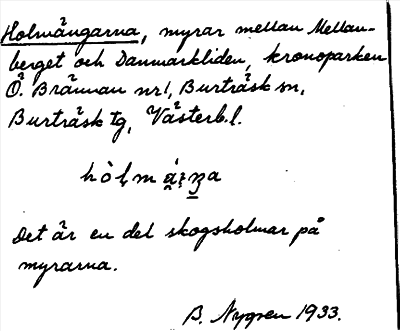 Holmängarna, myrar mellan Mellan-
berget och Danmarkliden, kronoparken
Ö. Brännan nr 1, Burträsk sn,
Burträsk tg, Västerb. l.
Det är en del skogsholmar på
myrarna.
B. Nygren 1933.